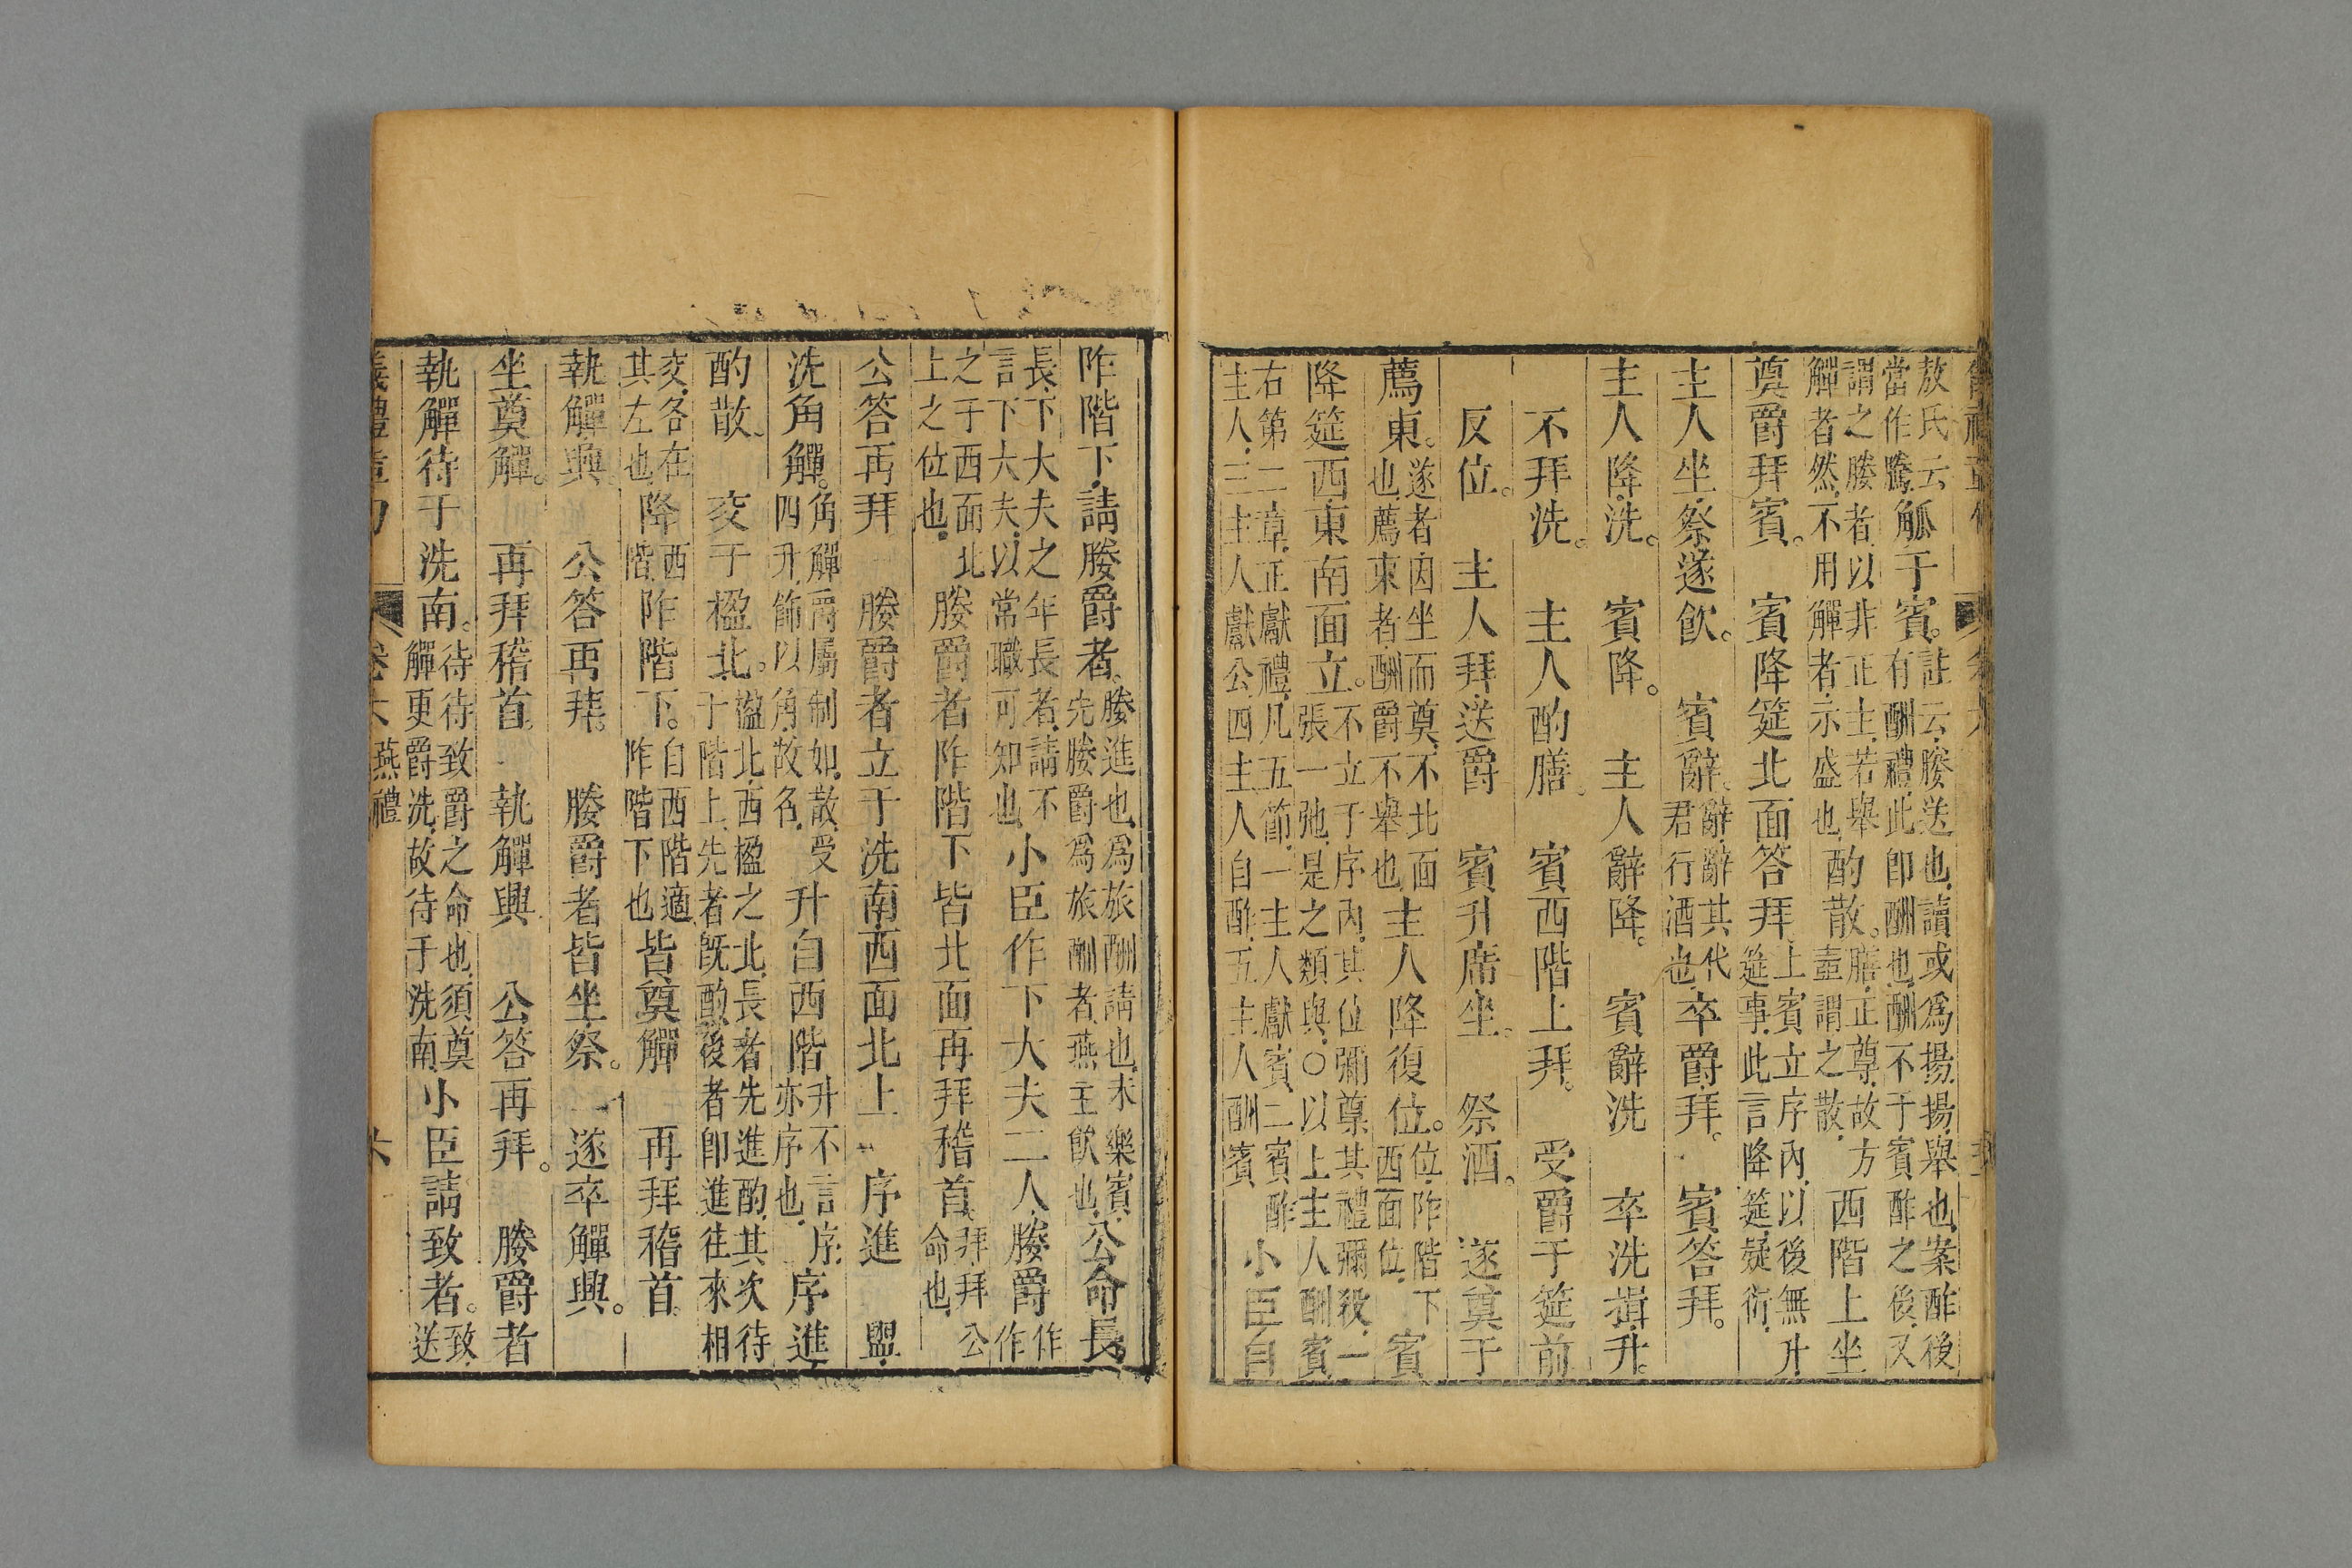 敖氏云當作騰觚于賓。註云媵送也讀或爲揚揚舉也案酢後有酬禮此卽酬也酬不于賓酢之後又
謂之媵者以非正主若舉觶者然不用觶者示盛也酌散。膳正尊故方壺謂之散西階上坐
奠爵拜賓。 賓降筵北面答拜上賓立序內以後無升筵事此言降筵疑衍
主人坐祭遂飲。 賓辭。辭辭其代君行酒也卒爵拜。 賓答拜。
主人降洗。 賓降。 主人辭降。 賓辭洗 卒洗揖升。
不拜洗。 主人酌膳。 賓西階上拜。 受爵于筵前
反位。 主人拜送爵 賓升席坐。 祭酒。 遂奠于
薦東。遂者因坐而奠不北面也薦東者酬爵不舉也主人降復位。位阼階下西面位 賓
降筵西東南面立。不立于序內其位彌尊其禮彌殺一張一弛是之類與○以上主人酬賓
右第二章正獻禮凡五節一主人獻賓二賓酢主人三主人獻公四主人自酢五主人酬賓 小臣自
阼階下請媵爵者。媵進也爲旅酬請也未樂賓先媵爵爲旅酬者燕主飲也公命長
長下大夫之年長者請不言下大夫以常職可知也小臣作下大夫二人媵爵作作
之于西面北上之位也媵爵者阼階下皆北面再拜稽首拜拜公命也
公答再拜 媵爵者立于洗南西面北上 序進 盥
洗角觶。角觶爵屬制如散受四升飾以角故名升自西階升不言序亦序也序進
酌散 交于楹北。楹北西楹之北長者先進酌其次待于階上先者旣酌後者卽進往來相
交各在其左也降西階阼階下。自西階適阼階下也皆奠觶 再拜稽首
執觶興 公答再拜。 媵爵者皆坐祭。 遂卒觶興。
坐奠觶。 再拜稽首 執觶興 公答再拜。 媵爵者
執觶待于洗南。待待致爵之命也須奠觶更爵洗故待于洗南小臣請致者。致送
卷六 燕禮 六